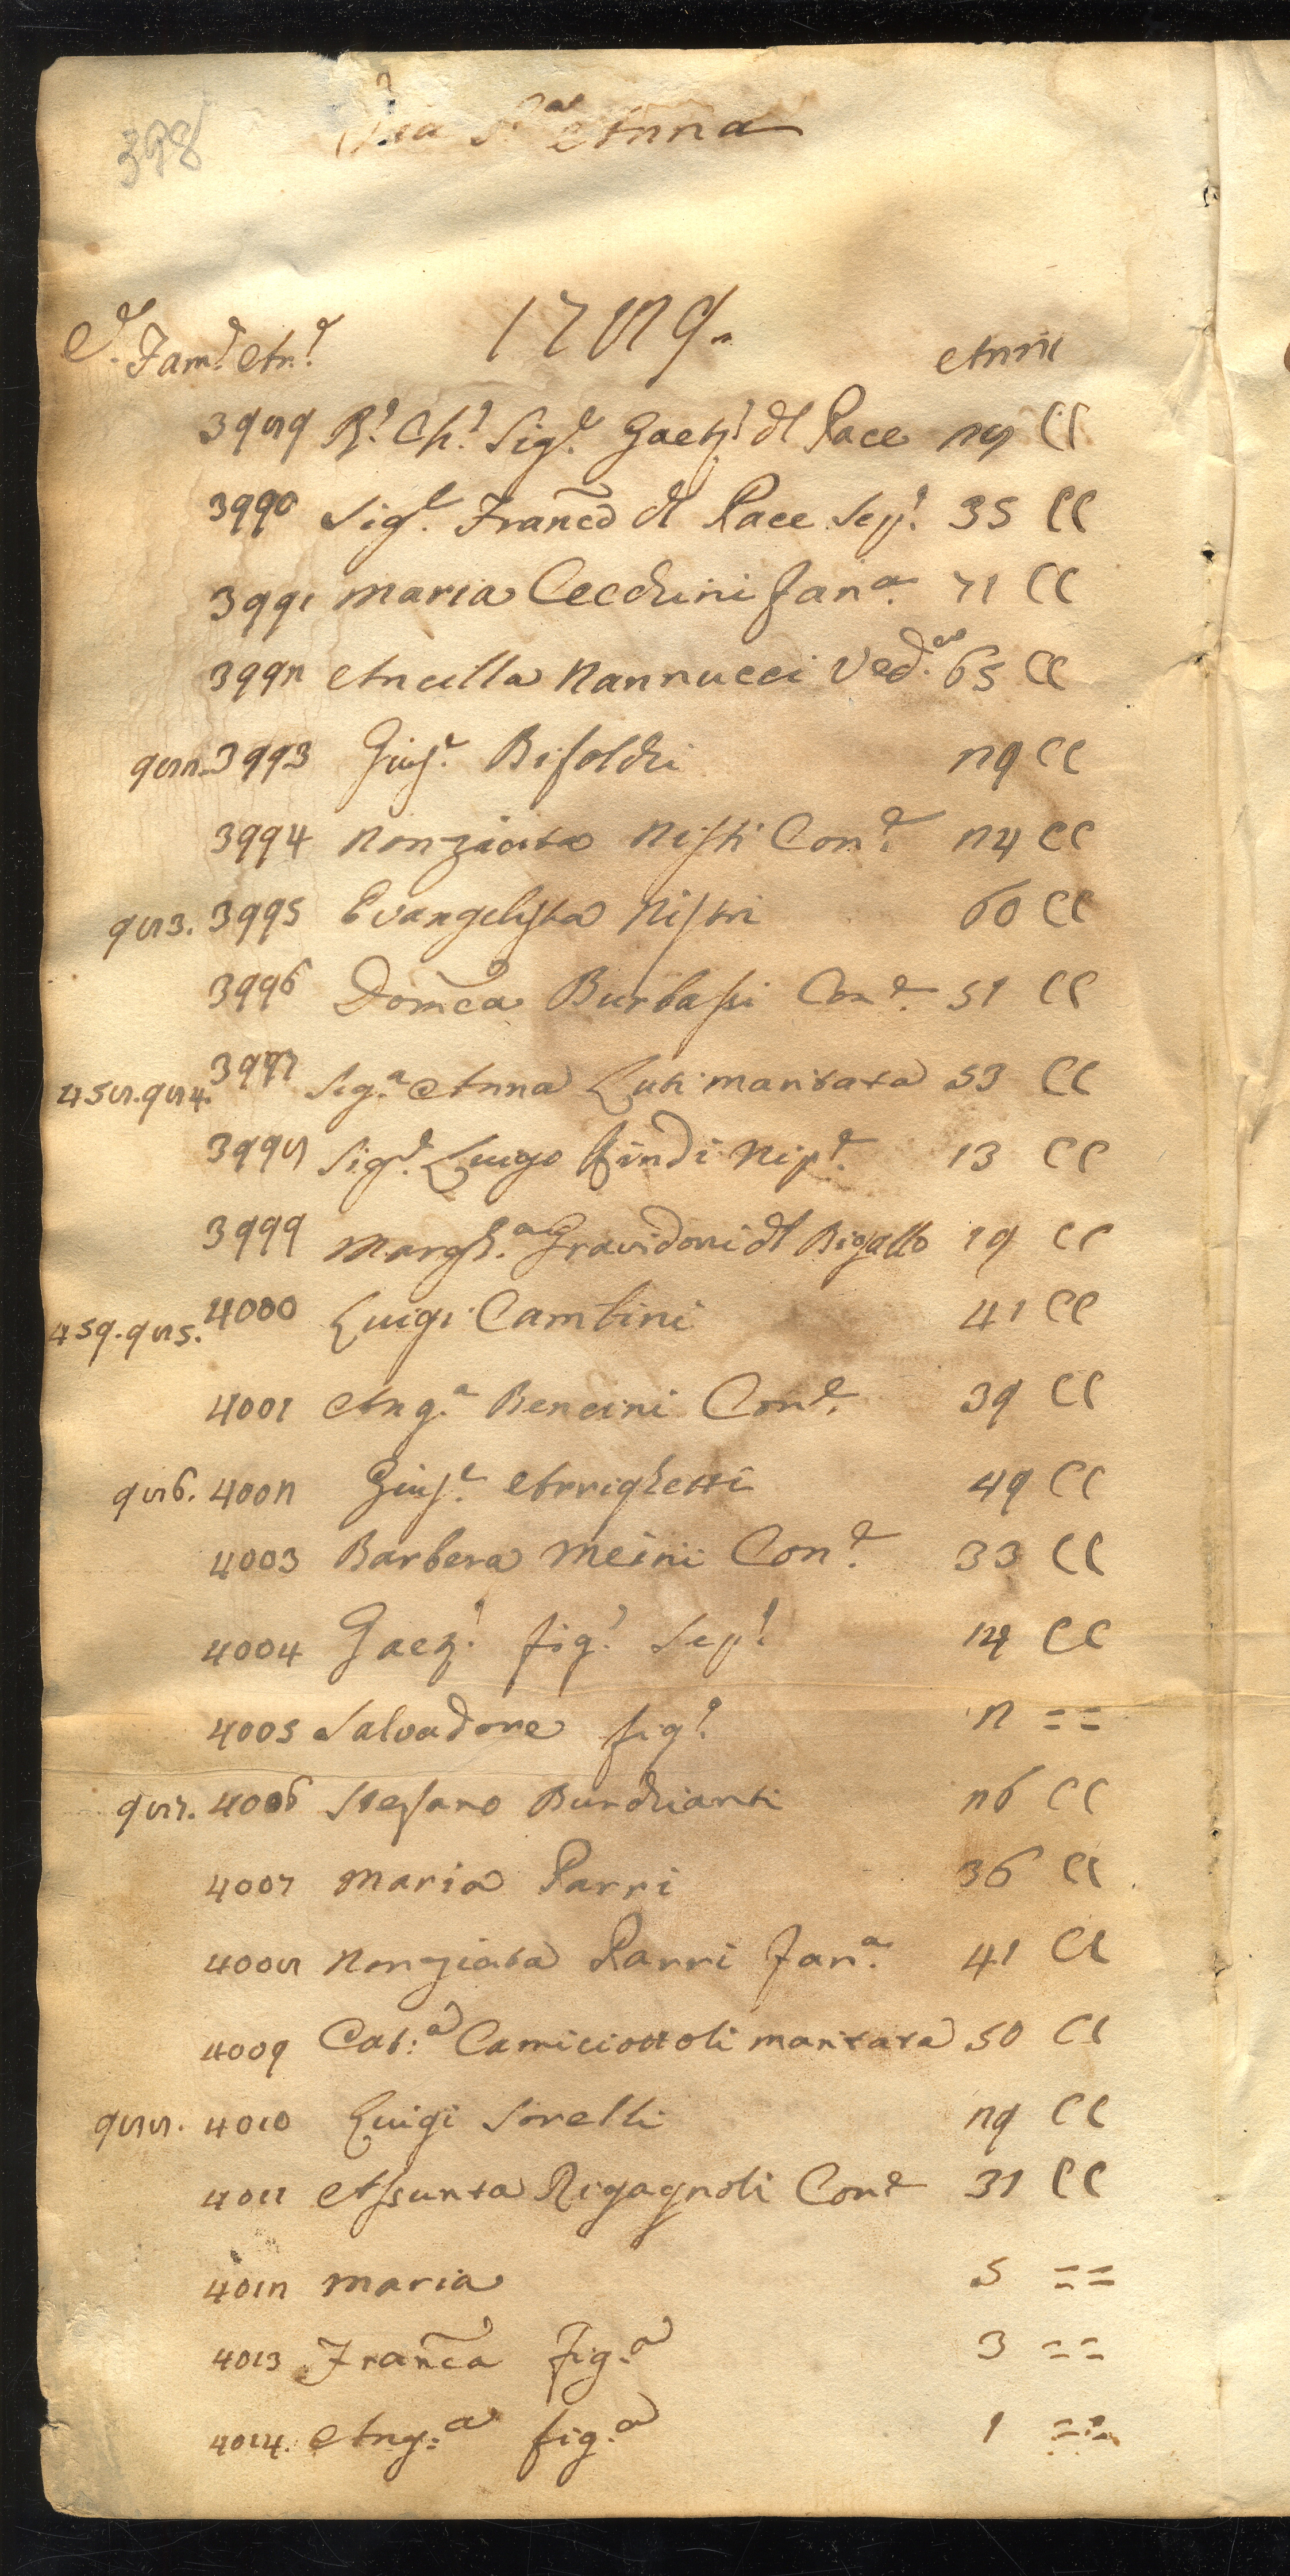 398
Via S.ta Anna
C.e Fam.e An.e 1789.
Anni
3989 R.o Ch.o Sig.e Gaet.o dl Pace 28 CC
3990 Sig.e Franc̃o dl Pace Sep.o 35 CC
3991 Maria Cecchini Fan.a 71 CC
3992 Ancilla Nannucci Ved.a 65 CC
982. 3993 Gius.e Bifolchi 29 CC
3994 Nonziata Nisti Con.e 24 CC
983. 3995 Evangelista Nistri 60 CC
3996 Dom̃ca Burbassi Con.e 51 CC
458. 984. 3997 Sig.a Anna Luti maritata 53 CC
3998 Sig.e Luigo Findi Nip.e 13 CC
3999 Margh.a Gravidoni dl Bigallo 19 CC
459. 985. 4000 Luigi Cambini 41 CC
4001 Ang.a Bencini Con.e 39 CC
986. 4002 Gius.e Arrighetti 49 CC
4003 Barbera Meini Con.e 33 CC
4004 Gaet.o fig.o Sep.o 14 CC
4005 Salvadore fig.o 2 = =
987. 4006 Stefano Burchianti 26 CC
4007 Maria Parri 36 CC
4008 Nonziata Parri Fan.a 41 CC
4009 Cat.a Camiciottoli maritata 50 CC
988. 4010 Luigi Sorelli 29 CC
4011 Assunta Rigagnoli Con.e 31 CC
4012 Maria 5 = =
4013 Franc̃a fig.a 3 = =
4014. Ang.a fig.a 1 = =